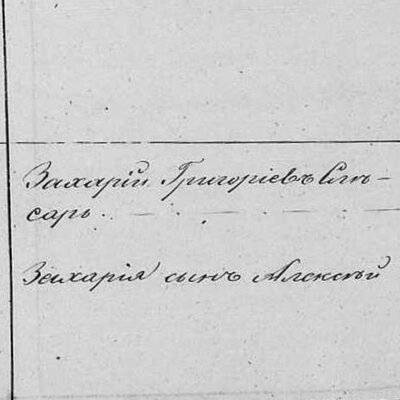 Захарій Григоріевъ Слю-
сарь.
Захарія сынъ Алексѣй